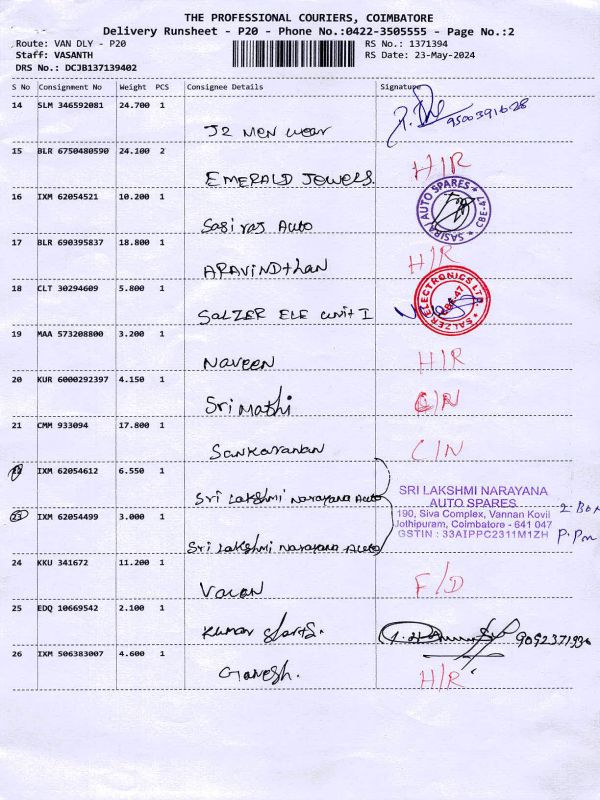 THE PROFESSIONAL COURIERS, COIMBATORE
Delivery Runsheet - P20 - Phone No.:0422-3505555 - Page No.:2
Route: VAN DLY - P20 RS No.: 1371394
Staff: VASANTH RS Date: 23-May-2024
DRS No.: DCJB137139402
S No Consignment No Weight PCS Consignee Details Signature
14 SLM 346592081 24.700 1
J2 Men wear 9500391628
15 BLR 6750480590 24.100 2
EMERALD JOWELS. H/R
16 IXM 62054521 10.200 1
Sasi raj Auto SASIRAJ AUTO SPARES * CBE-47 *
17 BLR 690395837 18.800 1
ARAVINDthan H/R
18 CLT 30294609 5.800 1
SALZER ELE unit I SALZER ELECTRONICS LTD. CBE-47
19 MAA 573208800 3.200 1
Naveen H/R
20 KUR 6000292397 4.150 1
Sri Mathi C/N
21 CMM 933094 17.800 1
Sankaranan C/N
IXM 62054612 6.550 1
Sri Lakshmi Narayana Auto
SRI LAKSHMI NARAYANA
AUTO SPARES
190, Siva Complex, Vannan Kovil
Jothipuram, Coimbatore - 641 047
GSTIN : 33AIPPC2311M1ZH
2. Box
P.Pm
23 IXM 62054499 3.000 1
Sri Lakshmi Narayana Auto
24 KKU 341672 11.200 1
F/D
25 EDQ 10669542 2.100 1
Kumar
26 IXM 506383007 4.600 1
Ganesh. H/R